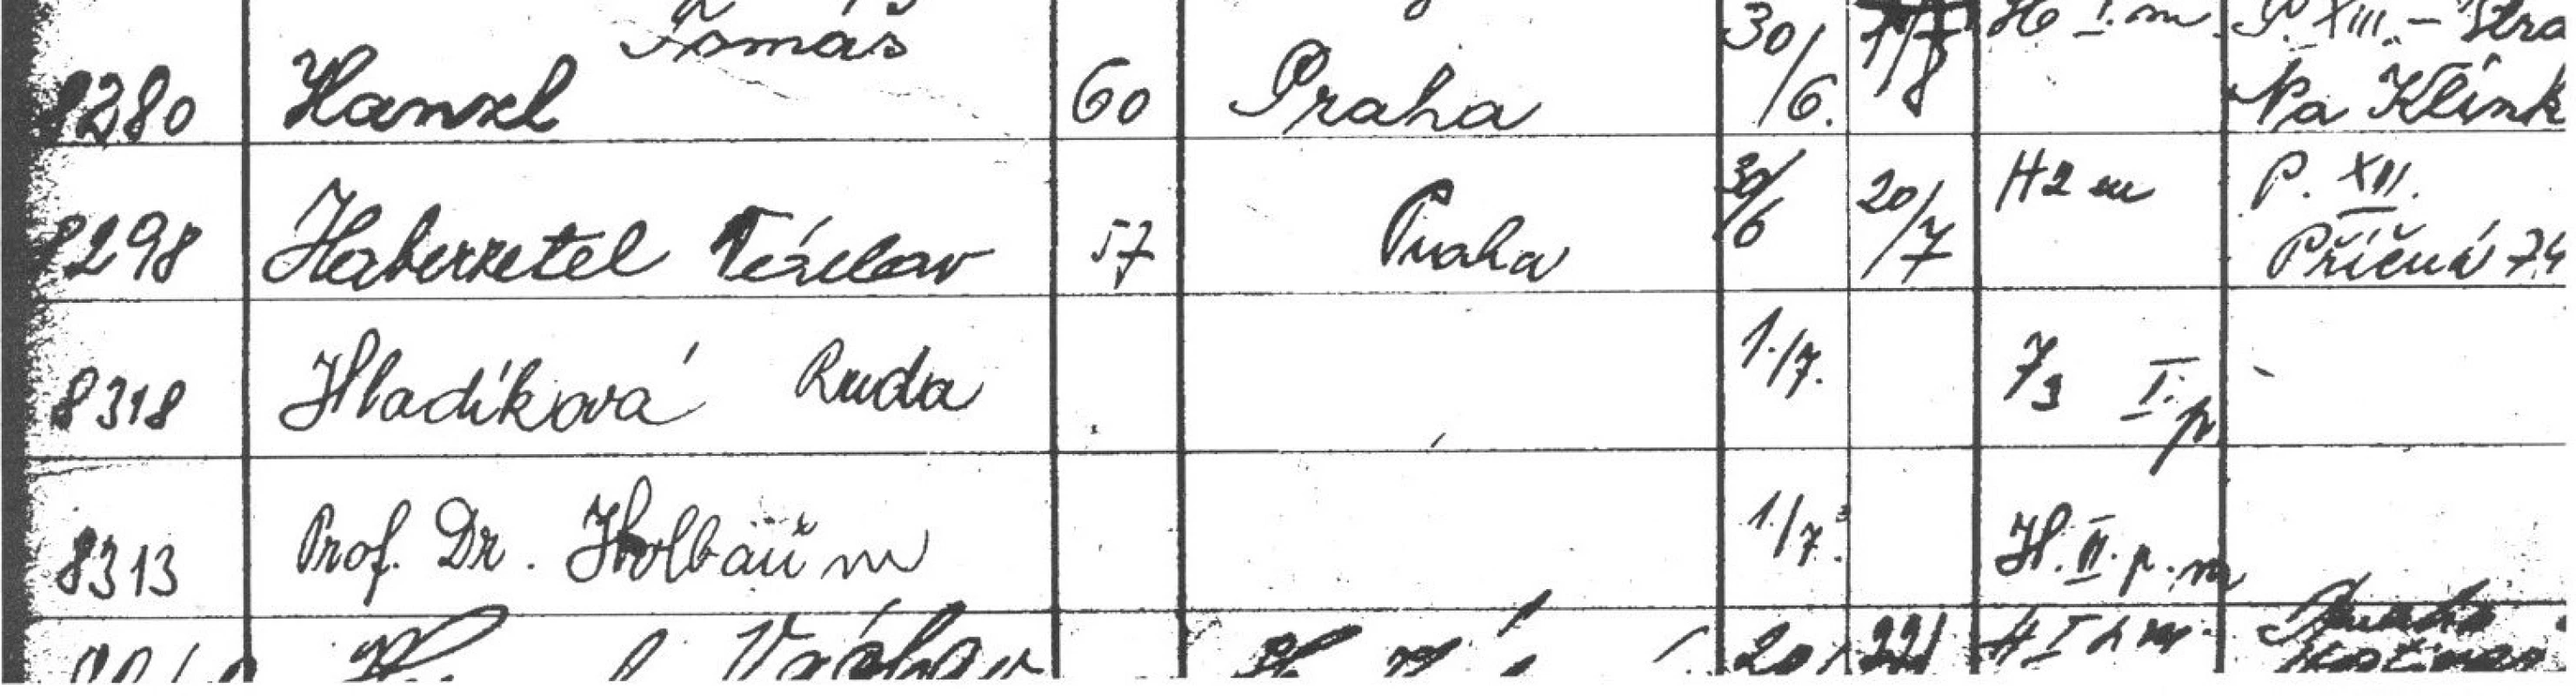 Tomáš 30/ 1/ H I. m. P. XIII. – Stra
8280 Hanzl 60 Praha /6. /8 Na Klínk
8298 Haberzetel Václav 57 Praha 30/6 20/7 H2 m P. XII.
Příčná 74
8318 Hladíková Ruda 1./7. 73 I. p -
8313 Prof. Dr. Holbaum 1./7. H. II. p. m
Václav 20/ 22/ H I Praha